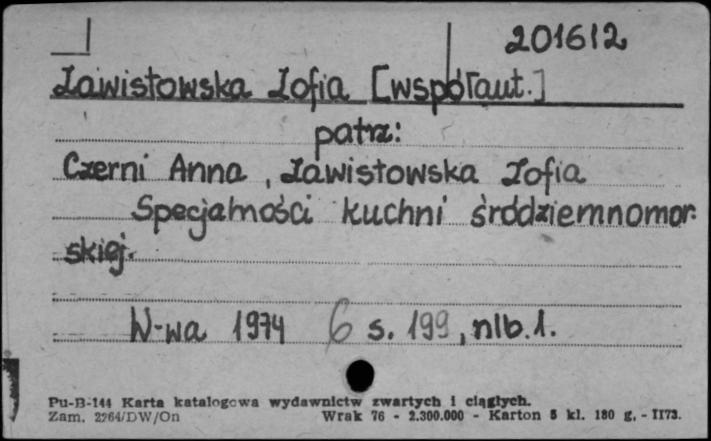 201612
Zawistowska Zofia [współaut.]
patrz:
Czerni Anna, Zawistowska Zofia
Specjalności kuchni śródziemnomor-
skiej.
W-wa 1974 6 s. 199, nlb. 1.
Pu-B-144 Karta katalogowa wydawnictw zwartych i ciągłych.
Zam. 2264/DW/On Wrak 76 - 2.300.000 - Karton 5 kl. 180 g. - II73.